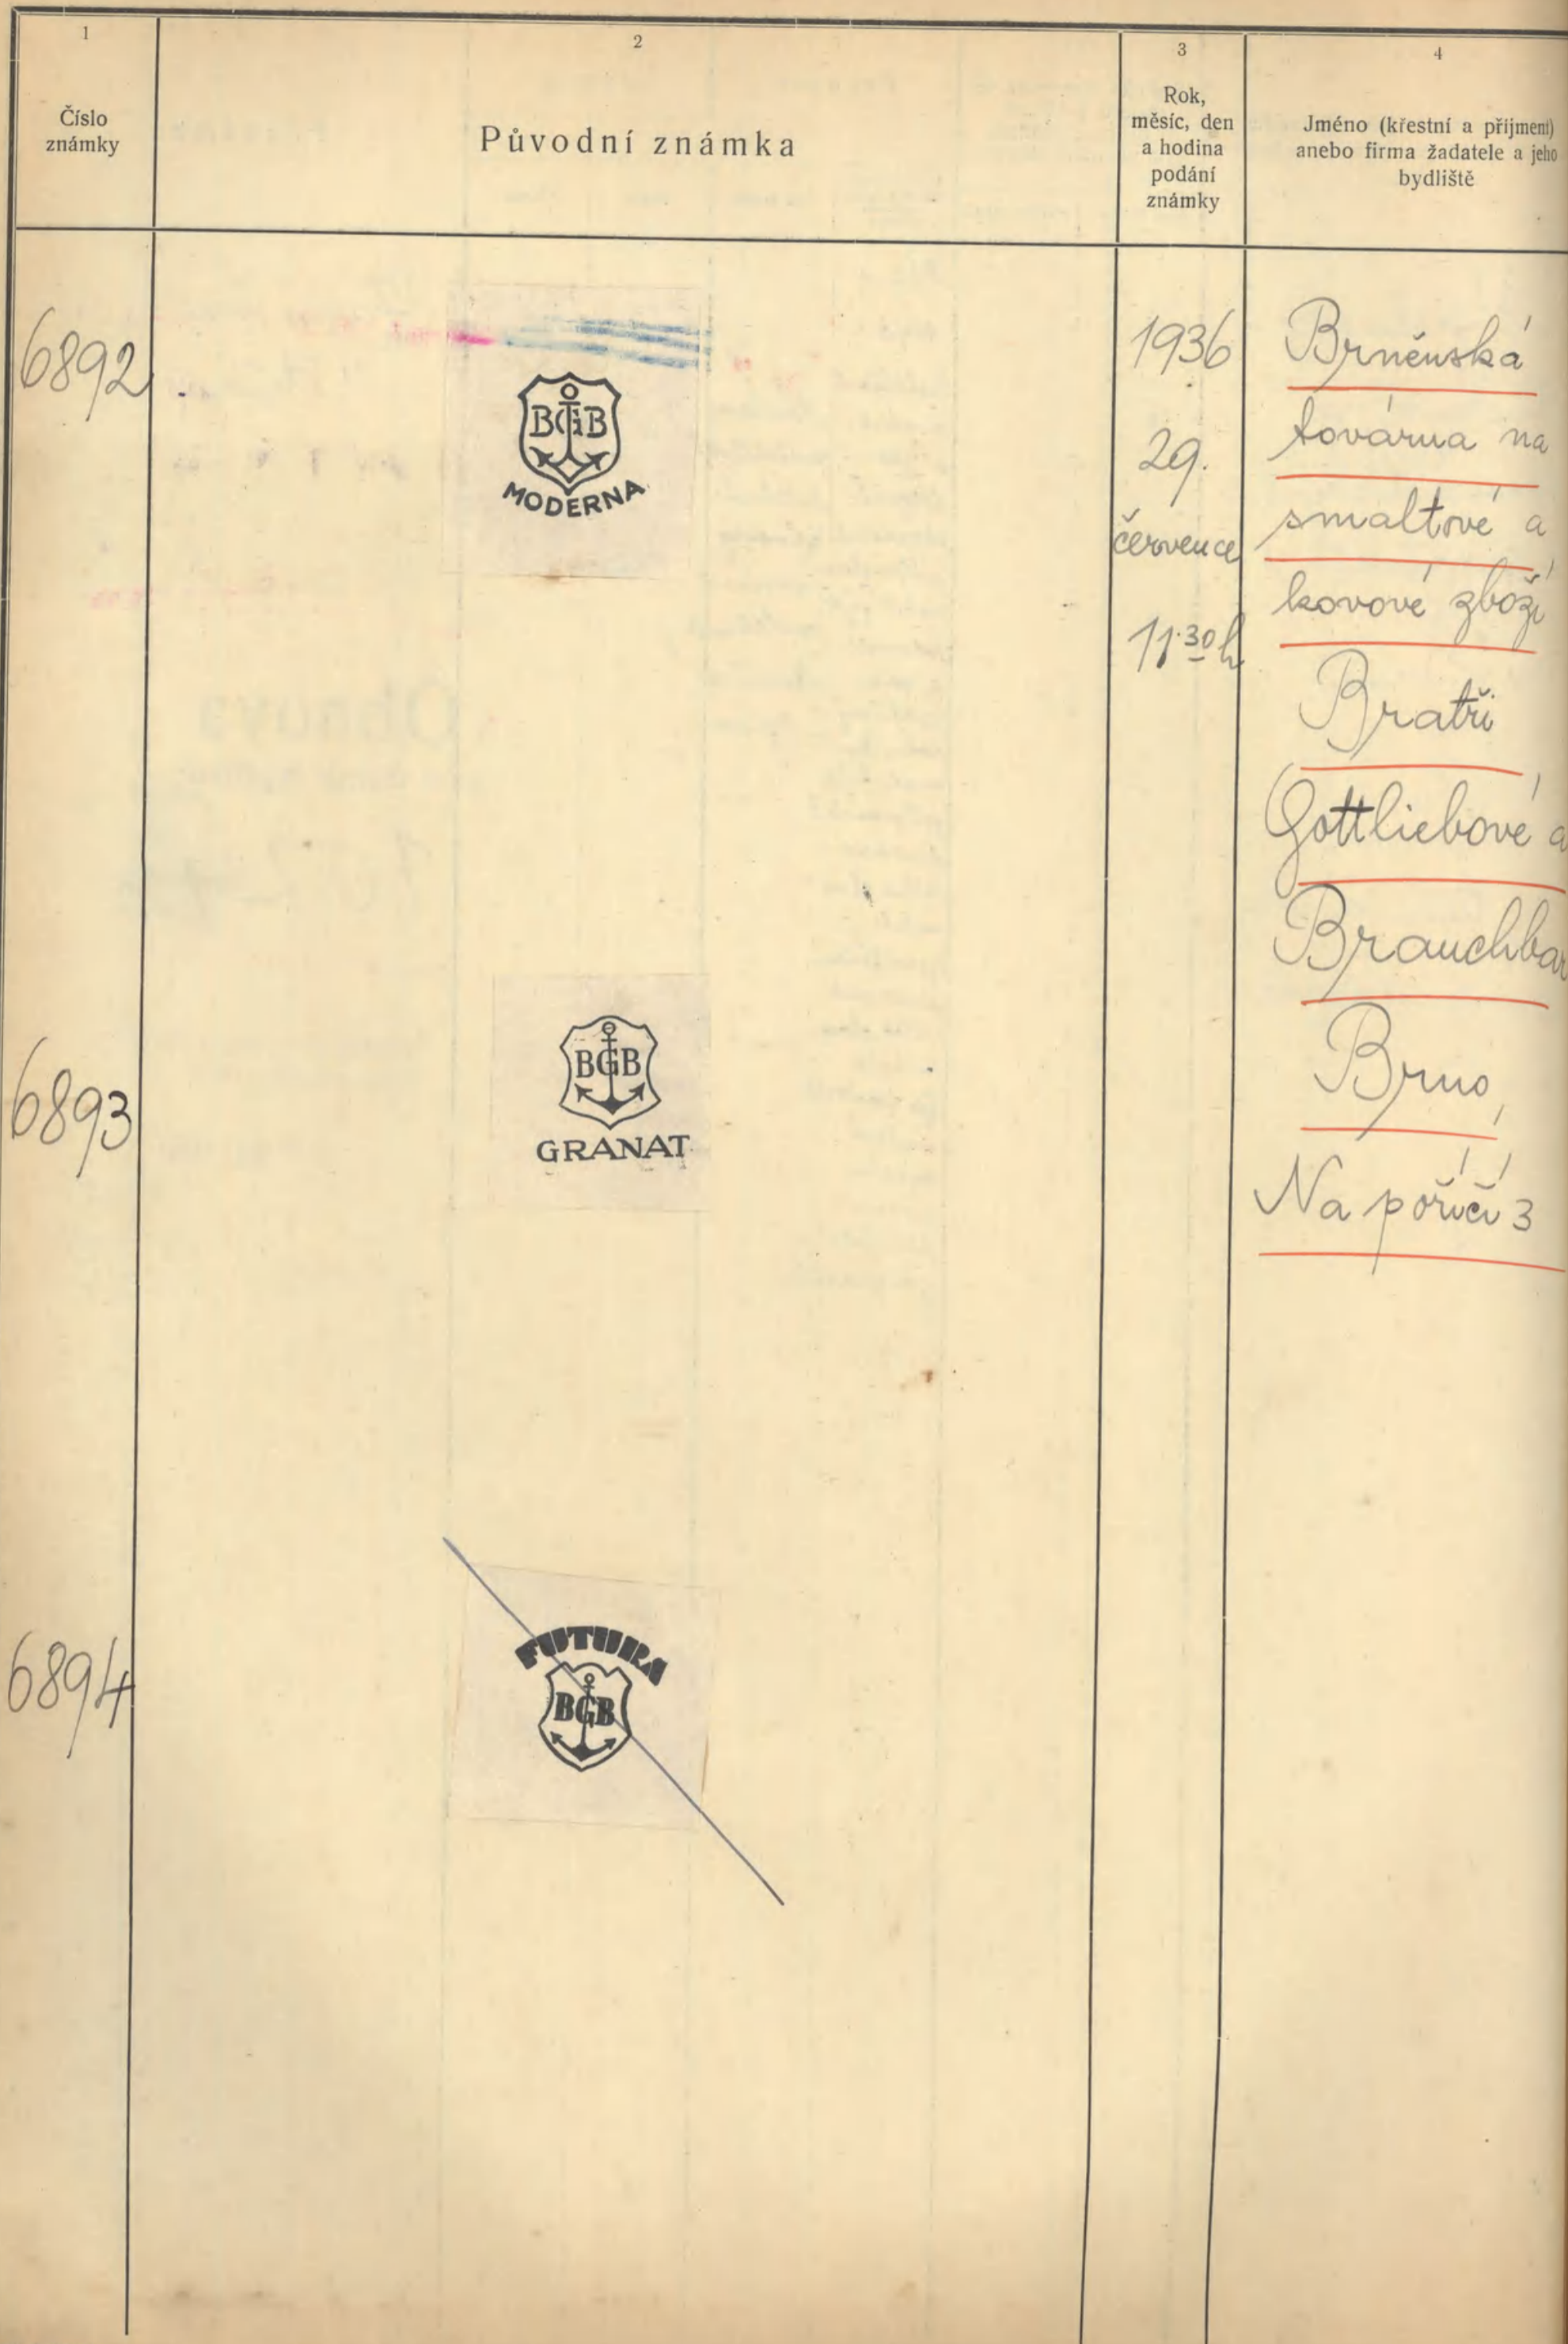 1
Číslo
známky
2
Původní známka
3
Rok,
měsíc, den
a hodina
podání
známky
4
Jméno (křestní a příjmení)
anebo firma žadatele a jeho
bydliště
6892
BGB
MODERNA
1936
29.
července
11.30 h
Brněnská
továrna na
smaltové a
kovové zboží
Bratři
Gottliebové a
Brauchbar
Brno,
Na poříčí 3
6893
BGB
GRANAT
6894
FUTURA
BGB